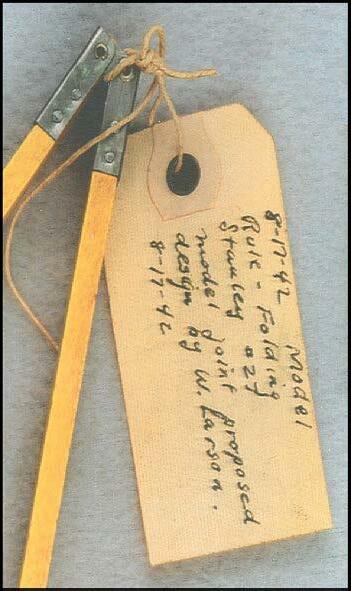 8-17-42 Model
Rule - Folding
Stanley
model joint proposed
design by W. Larson.
8-17-42